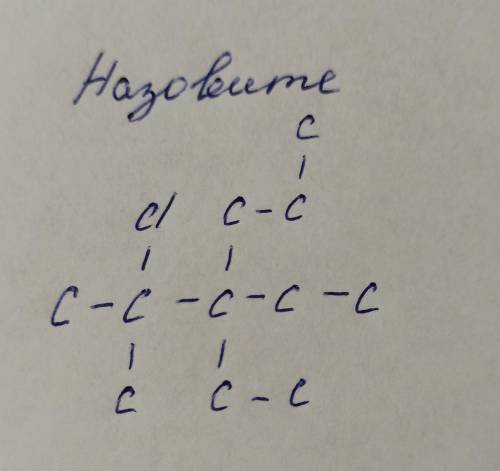 Назовите
C
Cl C - C
C - C - C - C - C
C C - C